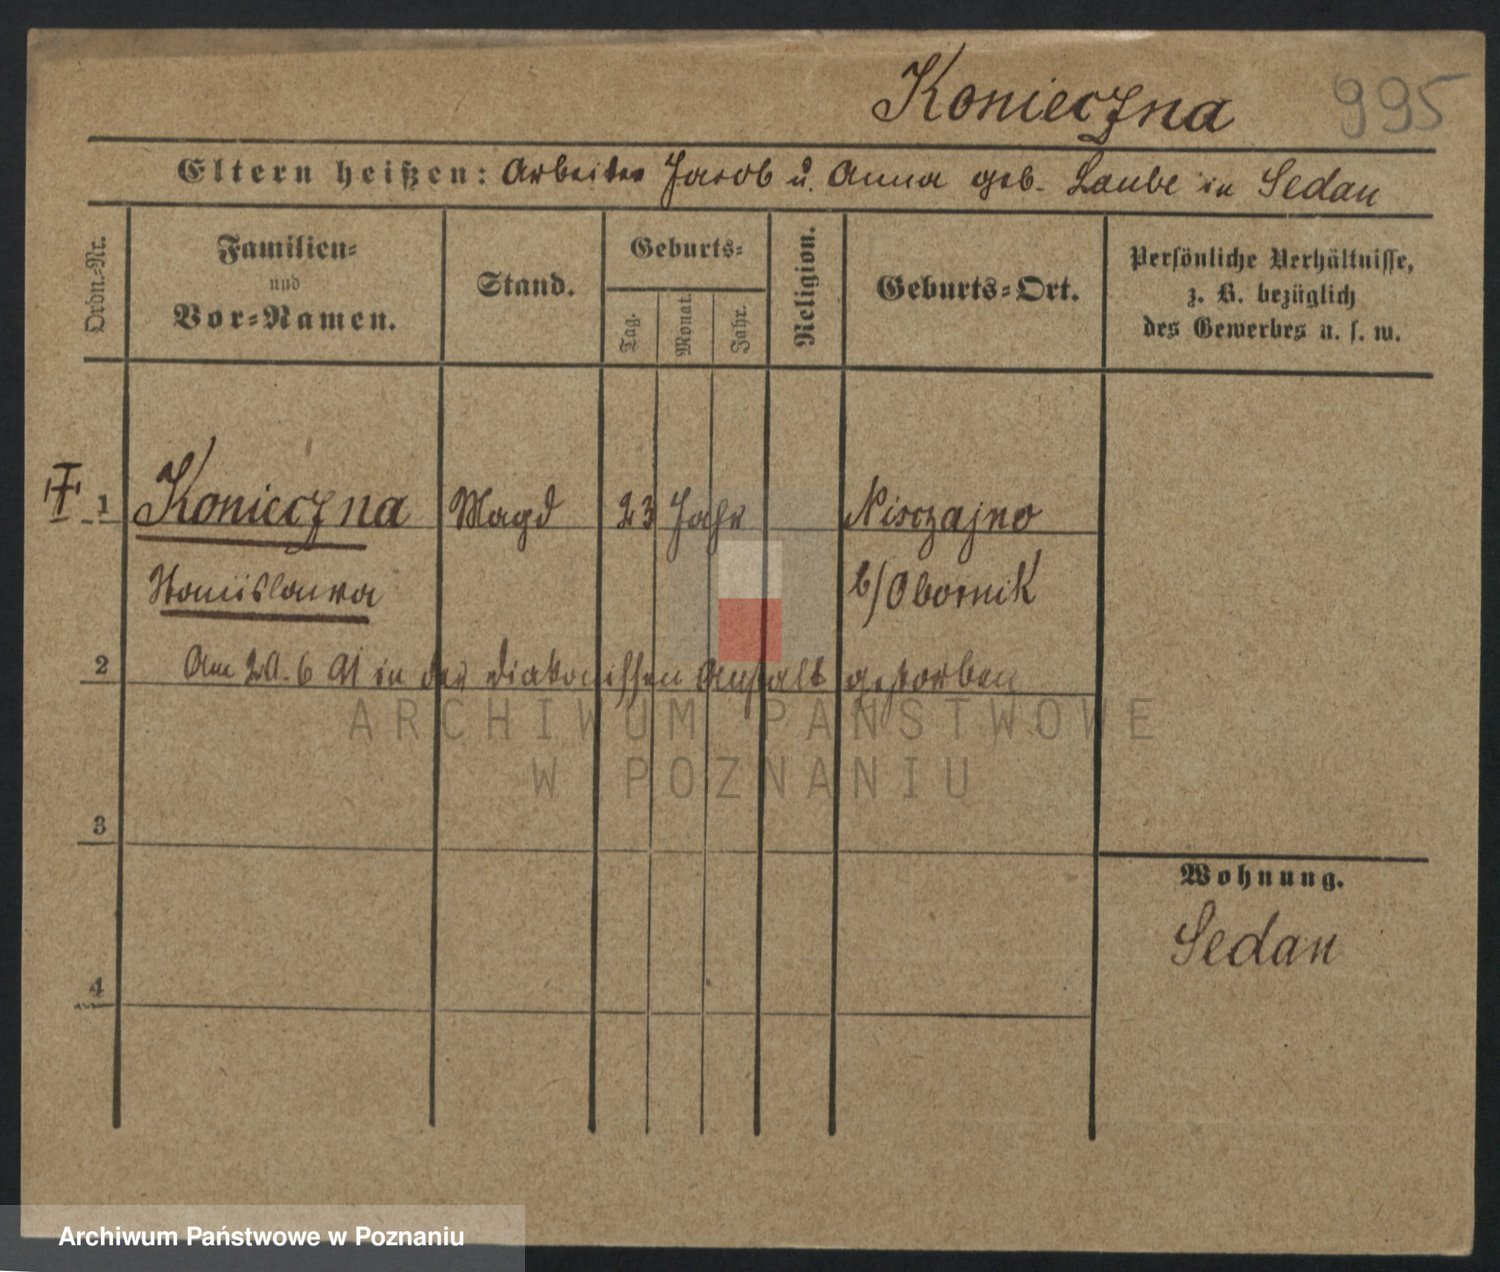 Konieczna 995
Eltern heißen: Arbeiter Jacob u. Anna geb. Laube in Sedan
Ordn.-Nr.
Familien-
und
Vor-Namen.
Stand.
Geburts-
Tag.
Monat.
Jahr.
Religion.
Geburts-Ort.
Persönliche Verhältnisse,
z. B. bezüglich
des Gewerbes u. s. w.
1 Konieczna Magd 23 Jahr
Stanislawa b/Obornik
2 Am 20. 6 91 in der Diakonissen Anstalt gestorben
ARCHIWUM PAŃSTWOWE
W POZNANIU
3
Wohnung.
Sedan
4
Archiwum Państwowe w Poznaniu